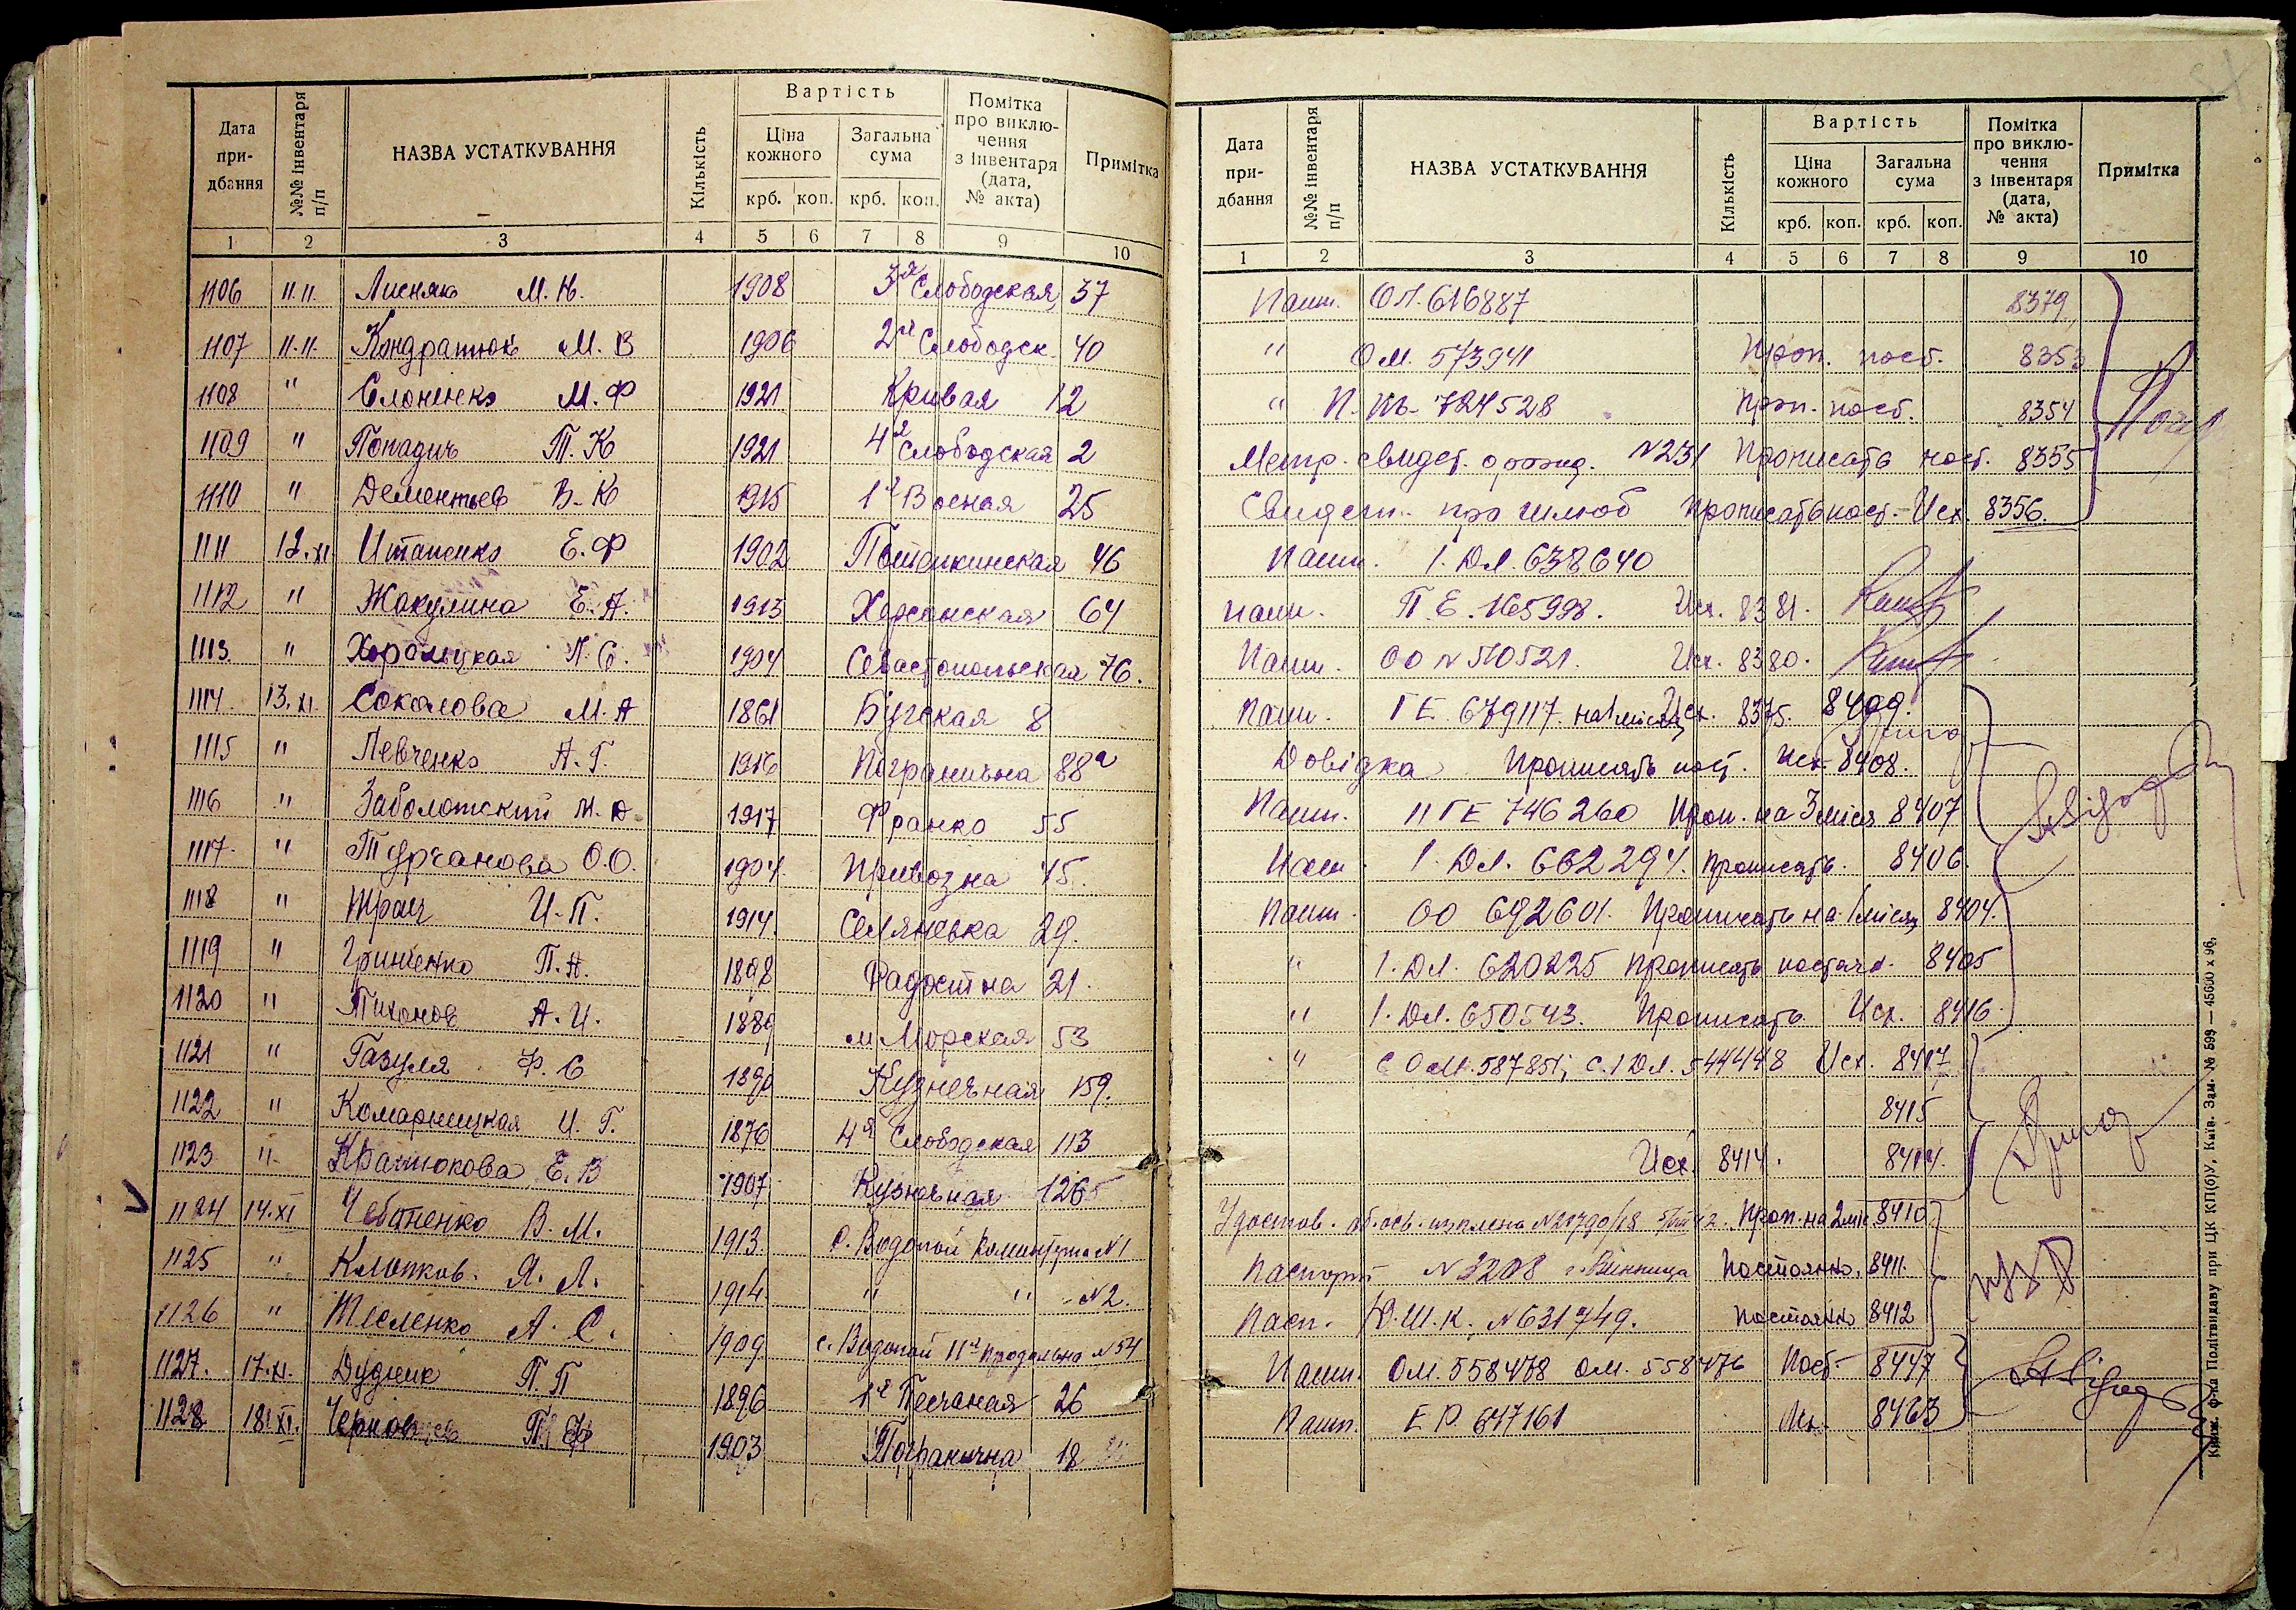 Дата при-дбання
№№ інвентаря п/п
НАЗВА УСТАТКУВАННЯ
Кількість
Вартість
Ціна кожного
Загальна сума
крб. коп. крб. коп.
Помітка про виклю-чення з інвентаря (дата, № акта)
Примітка
1 2 3 4 5 6 7 8 9 10
1106 11.11. Лисняк М.Н. 1908 3я Слободская 37
1107 11.11. Кондратюк М.В 1906 2я Слободск. 40
1108 " Слоненко М.Ф 1921 Кривая 12
1109 " Попадич Т.К 1921 4я Слободская 2
1110 " Дементьев В.К 1915 1я Военая 25
1111 12.XI Итаненко Е.Ф 1902 Потемкинская 46
1112 " Жакулина Е.А. 1913 Херсонская 64
1113. " Хорольцкая Л.С. 1904 Севастопольская 76.
1114. 13.XI. Соколова М.А 1861 Бугская 8
1115 " Левченко А.Г. 1916 Погранична 88а
1116 " Заболотский М.Ю. 1917 Франко 55
1117. " Турчанова О.О. 1904. Привозна 45.
1118 " Трач И.П. 1914. Селянська 29.
1119 " Гриненко П.А. 1898 Радостна 21.
1120 " Тихонов А.И. 1889 м Морская 53
1121 " Газуля Ф.С 1890 Кузнечная 159.
1122 " Комарницкая И.Г. 1876 4я Слободская 113
1123 " Кратюкова Е.В 1907 Кузнечная 126
1124 14.XI Чебаненко В.М. 1913. с. Водопой Коминтерна N1
1125 " Клопков. Я.Л. 1914 " " N2.
1126 " Тесленко А.С. 1909 с. Водопой 11я продольна N54
1127. 17.XI. Дудник П.П 1896 1я Песчаная 26
1128 18.XI. П.Ф 1903 Погранична 18
Дата при-дбання
№№ інвентаря п/п
НАЗВА УСТАТКУВАННЯ
Кількість
Вартість
Ціна кожного
Загальна сума
крб. коп. крб. коп.
Помітка про виклю-чення з інвентаря (дата, № акта)
Примітка
1 2 3 4 5 6 7 8 9 10
Пашп. ОЛ. 616887 8379
" ОМ. 573941 Проп. пост. 8353
" П. 724528 Проп. пост. 8354
Метр. свидет. о рожд. N231 Прописать пост. 8355
Свидет. про шлюб Прописать пост. Исх. 8356.
Пашп. 1.ДЛ. 638640
Пашп. П.Е. 165998. Исх. 8381.
Пашп. ОО N 510521. Исх. 8380.
Пашп. ГЕ. 679117. на 1 місяц Исх. 8375. 8409.
Довідка Прописать пост. Исх. 8408.
Пашп. II ГЕ 746260 Проп. на 3 міся 8407
Пашп. 1.ДЛ. 662294. Прописать. 8406.
Пашп. ОО 692601. Прописать на 1 місяц 8404.
" 1.ДЛ. 620225 прописать постоян. 8405
" 1.ДЛ. 650543. Прописать Исх. 8416
" С ОМ. 587851; С.1 ДЛ. 544448 Исх. 8417
8415
Исх. 8414. 8414.
Удостов. об. осв. из плена N Проп. на 2 міс 8410
Паспорт N 3208 г. Винница постоянно. 8411.
Пасп. Ю.Ш.К. N 631749. постоянно 8412
Пашп. ОМ. 558478 ОМ. 558476 Пост. 8447
Пашп. ЕР. 647161 Исх. 8463
Книж. ф-ка Політвидаву при ЦК КП(б)У, Київ. Зам. № 599 — 45600 х 96.